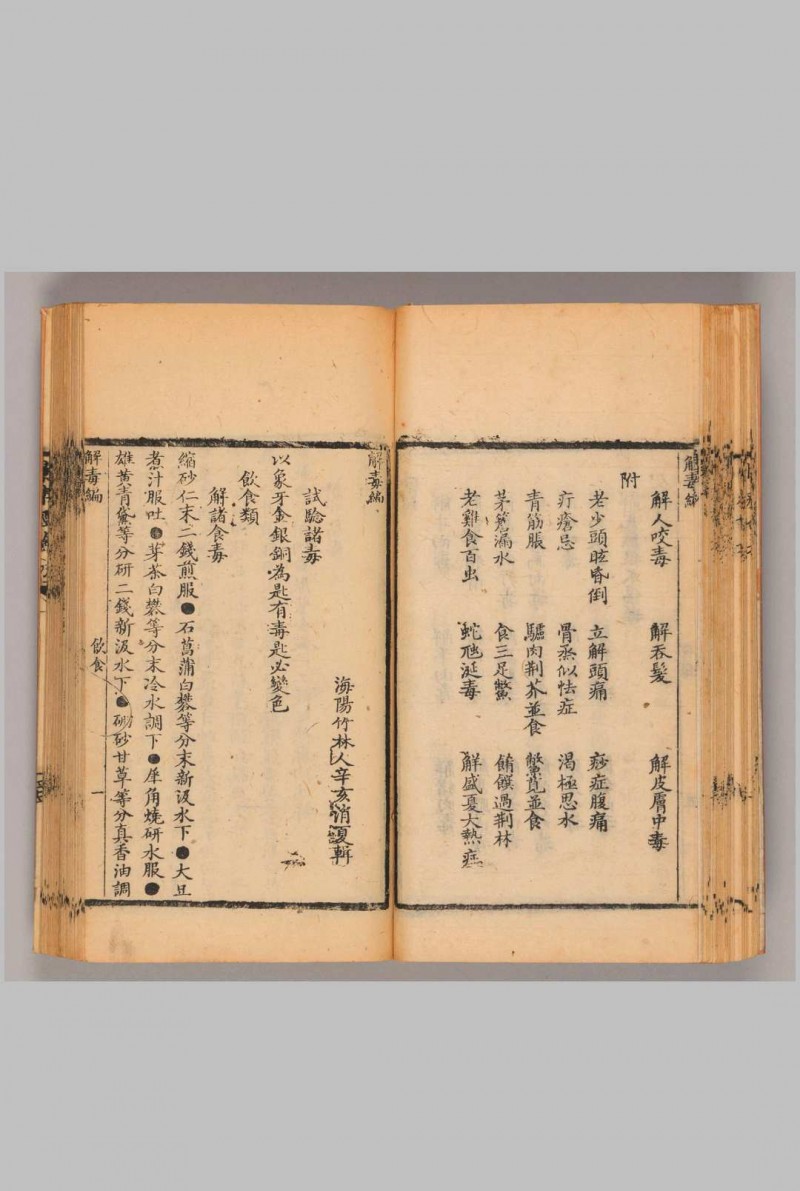 解毒編
解人咬毒　解吞髮　解皮膚中毒
附
老少頭眩昏倒　立解頭痛　痧症腹痛
疔瘡忌　骨蒸似怯症　渴極思水
青筋脹　驢肉荆芥並食　鱉莧並食
茅簷漏水　食三足鱉　餚饌過荆林
老雞食百虫　蛇虺涎毒　解盛夏大熱症
解毒編
海陽竹林人辛亥消夏輯
試驗諸毒
以象牙金銀銅為匙有毒匙必變色
飲食類
解諸食毒
縮砂仁末二錢煎服●石菖蒲白礬等分末新汲水下●大豆
煮汁服吐●芽茶白礬等分末冷水調下●犀角燒研水服●
雄黃青黛等分研二錢新汲水下●硼砂甘草等分真香油調
解毒編　飲食　一